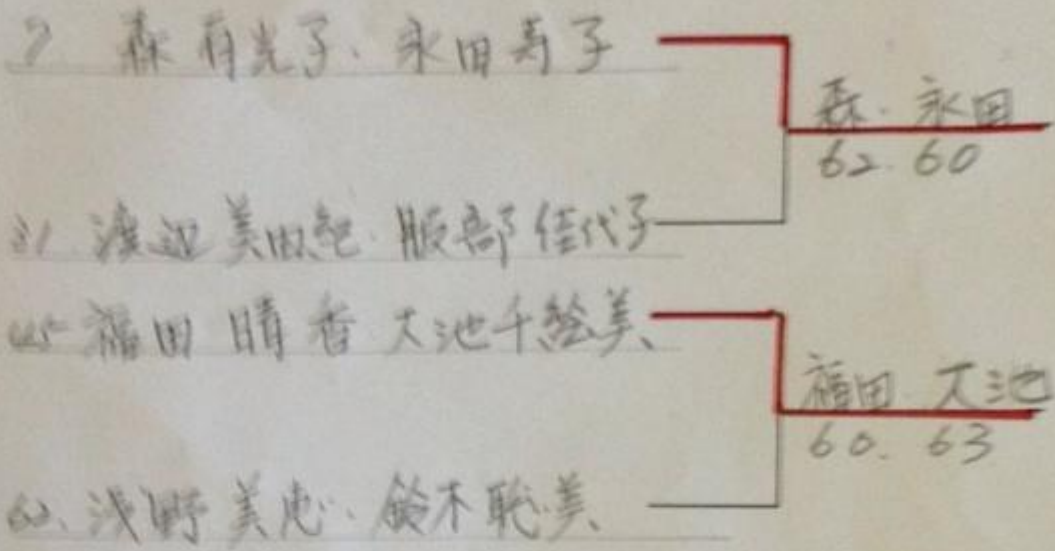 7 森有光子、永田寿子
森・永田
62. 60
31 渡辺美 服部佳代子
45 福田晴香 大池千絵美
福田 大池
60. 63
60、浅野美恵、鈴木聡美